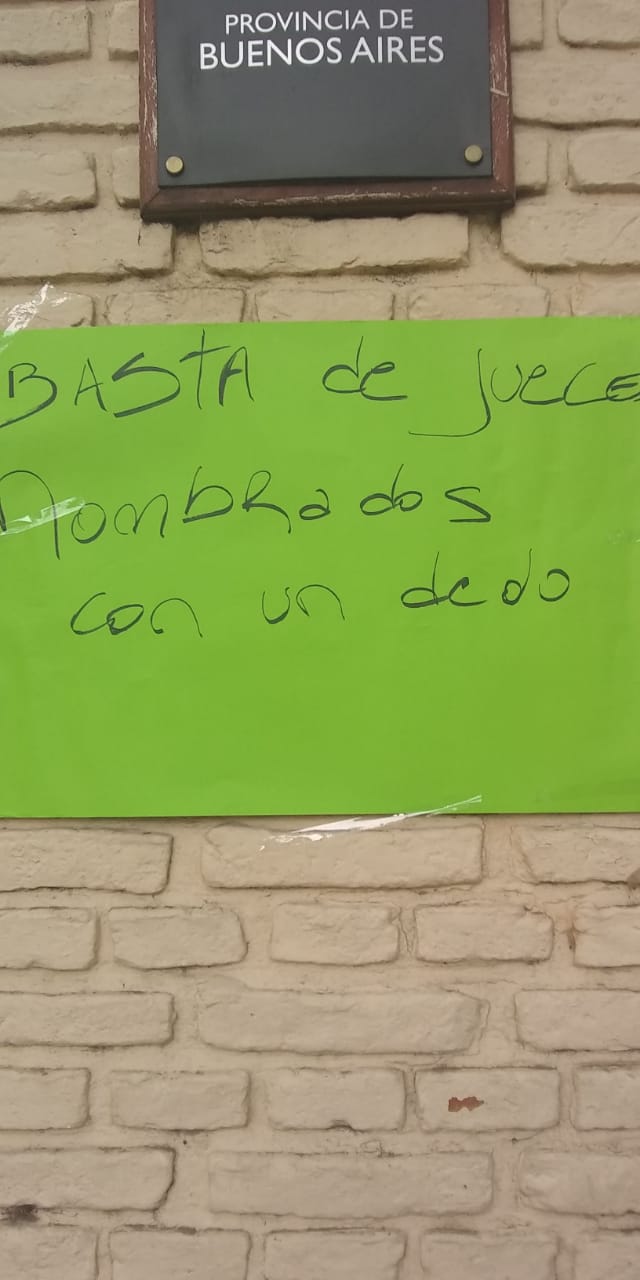 PROVINCIA DE
BUENOS AIRES
BASTA de jueces
Nombrados
con un dedo